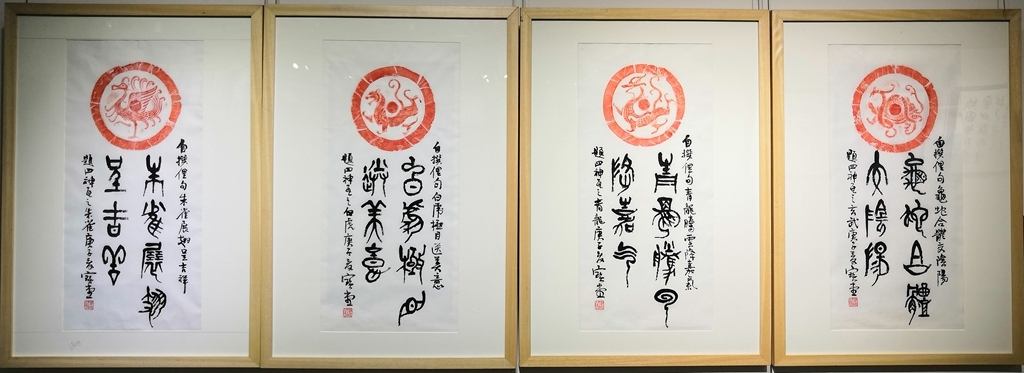 自撰俚句朱雀展翅呈吉祥
朱雀展翅
呈吉祥
題四神瓦之朱雀庚子夏
自撰俚句白虎極目送美意
白虎極目
送美意
題四神瓦之白虎庚子夏
自撰俚句青龍騰雲降嘉氣
青龍騰雲
降嘉气
題四神瓦之青龍庚子夏
自撰俚句龜蛇合體交陰陽
龜蛇合體
交陰陽
題四神瓦之玄武庚子夏